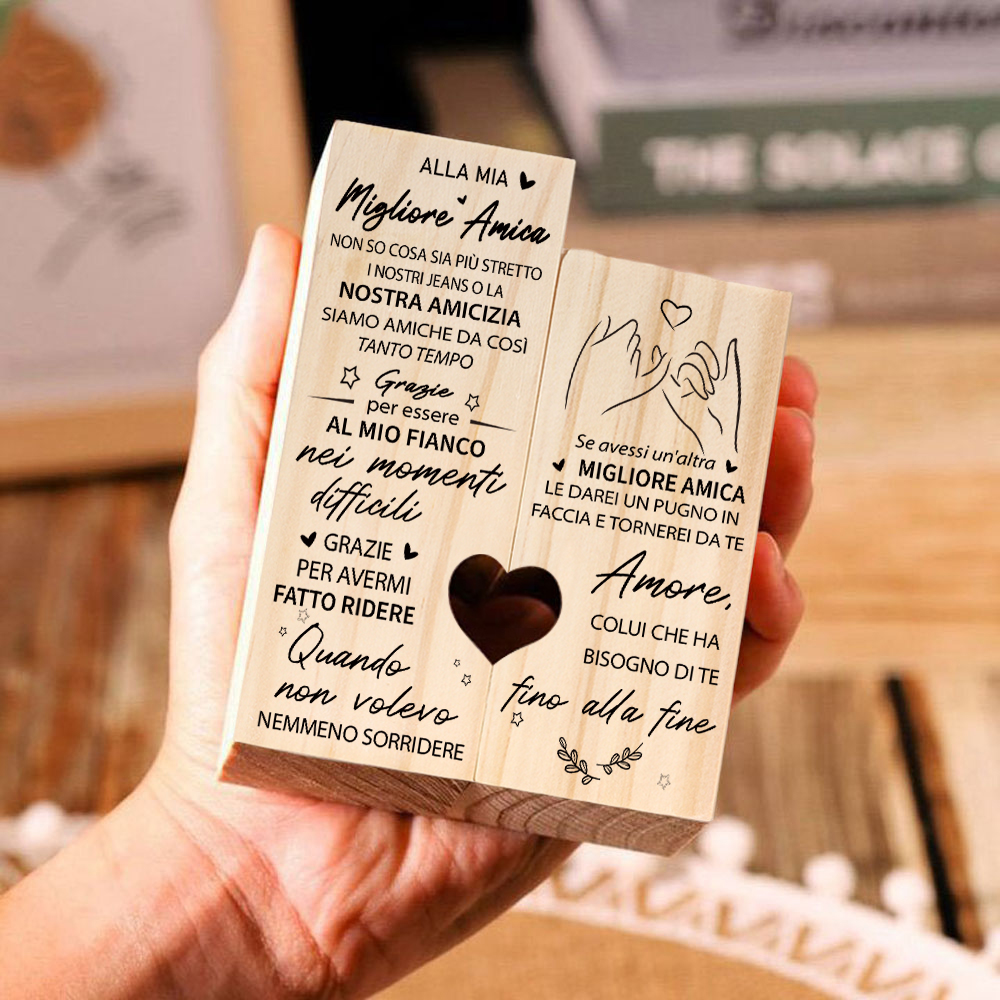 ALLA MIA
Migliore Amica
NON SO COSA SIA PIÙ STRETTO
I NOSTRI JEANS O LA
NOSTRA AMICIZIA
SIAMO AMICHE DA COSÌ
TANTO TEMPO
Grazie
per essere
AL MIO FIANCO
nei momenti
difficili
GRAZIE
PER AVERMI
FATTO RIDERE
Quando
non volevo
NEMMENO SORRIDERE
Se avessi un'altra
MIGLIORE AMICA
LE DAREI UN PUGNO IN
FACCIA E TORNEREI DA TE
Amore,
COLUI CHE HA
BISOGNO DI TE
fino alla fine
THE SOLACE